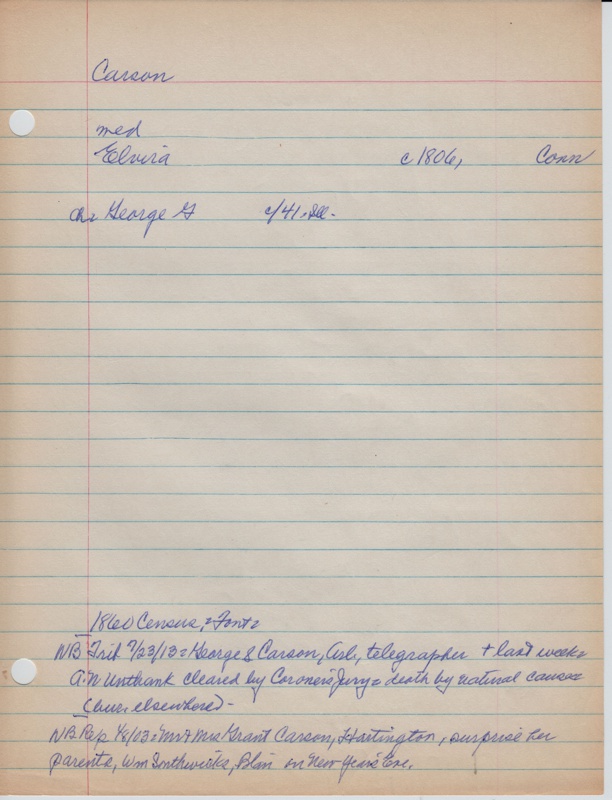 Carson
med
Elvira c1806, Conn
ch= George G c/41, Ill.
1860 Census, = Font=
NB Trib 7/23/13 = George S Carson, Arl., telegrapher + last week=
A.N Unthank cleared by Coroner's Jury = death by natural causes=
(bur. elsewhere) -
NB Rep 1/8/03 = Mr + Mrs Grant Carson, Hartington, surprise her
parents, Wm Southwicks, Blair on New Years Eve.